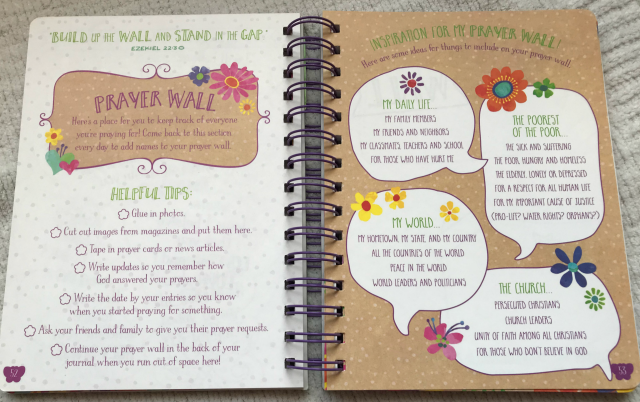 "Build up the Wall and Stand in the Gap."
Ezekiel 22:30
Prayer Wall
Here's a place for you to keep track of everyone
you're praying for! Come back to this section
every day to add names to your prayer wall.
Helpful Tips:
Glue in photos.
Cut out images from magazines and put them here.
Tape in prayer cards or news articles.
Write updates so you remember how
God answered your prayers.
Write the date by your entries so you know
when you started praying for something.
Ask your friends and family to give you their prayer requests.
Continue your prayer wall in the back of your
journal when you run out of space here!
32
Inspiration for my Prayer Wall!
Here are some ideas for things to include on your prayer wall.
My Daily Life...
My family members
My friends and neighbors
My classmates, teachers and school
For those who have hurt me
The Poorest
of the Poor...
The sick and suffering
The poor, hungry and homeless
The elderly, lonely or depressed
For a respect for all human life
For my important cause of justice
(Pro-life? Water rights? Orphans?)
My World...
My hometown, my state, and my country
All the countries of the world
Peace in the world
World leaders and politicians
The Church...
Persecuted Christians
Church leaders
Unity of faith among all Christians
For those who don't believe in God
33